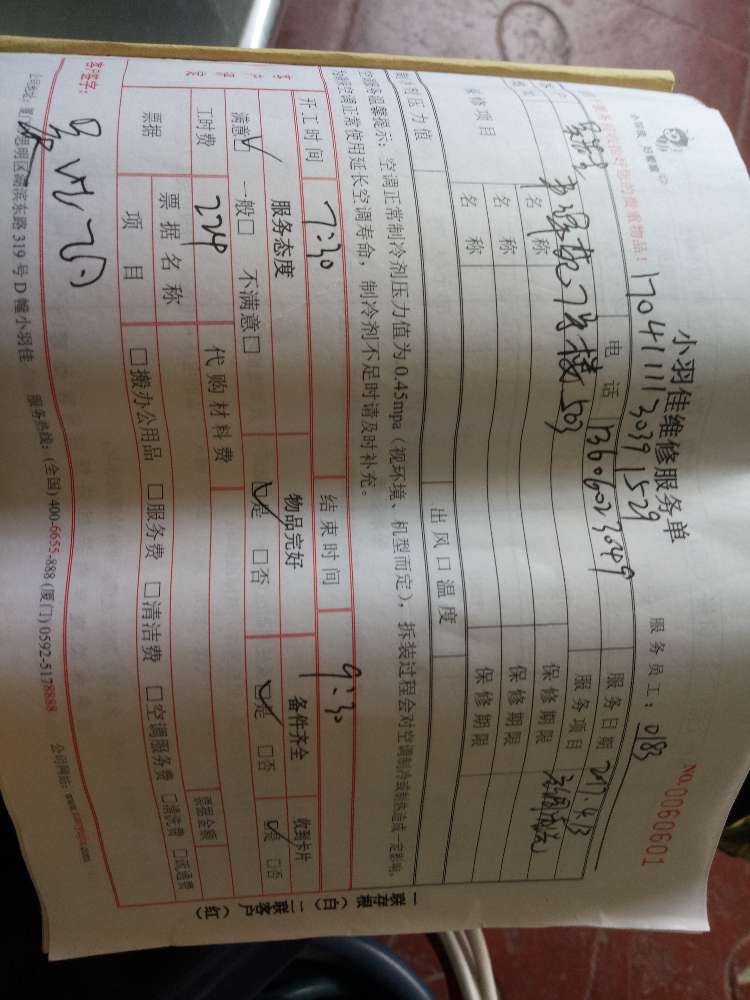 小羽佳维修服务单
NO.0060601
小羽佳 好管家
1704111130391529
服务员工：0183
电话 13606023049 服务日期 2017.4.3
503
服务项目
名称 保修期限
名称 保修期限
保修项目 名称 保修期限
制冷剂压力值 出风口温度
空调服务温馨提示：空调正常制冷剂压力值为0.45mpa（视环境、机型而定），拆装过程会对空调制冷或制热造成一定影响，
为确保空调正常使用延长空调寿命，制冷剂不足时请及时补充。
开工时间 7:30 结束时间 9:30
服务态度 物品完好 备件齐全 收到卡片
满意☑ 一般□ 不满意□ ☑是 □否 ☑是 □否 ☑是 □否
工时费 220 代购材料费
票据 票据名称 票据金额
项目 □搬办公用品 □服务费 □清洁费 □空调服务费 □清洗费 □疏通费
客户签字：
公司地址：厦门思明区湖滨东路319号D幢小羽佳 服务热线：(全国)400-6655-888 (厦门)0592-5178888 公司网站：
一联存根（白） 二联客户（红）